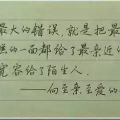 最大的错误，就是把最
的一面都给了最亲近的
宽容给了陌生人.
——向至亲至爱的